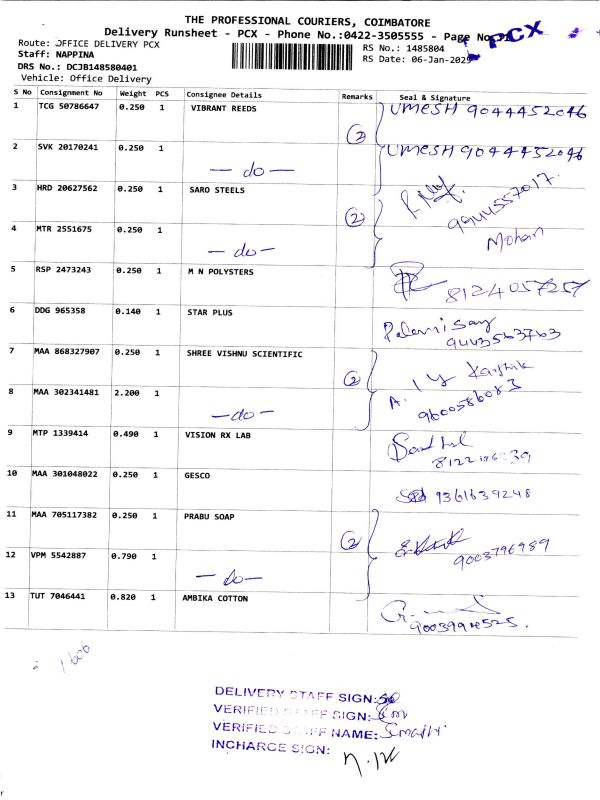 THE PROFESSIONAL COURIERS, COIMBATORE
Delivery Runsheet - PCX - Phone No.:0422-3505555 - Page No.:
PCX
Route: OFFICE DELIVERY PCX
RS No.: 1485804
Staff: NAPPINA
RS Date: 06-Jan-2025
DRS No.: DCJB148580401
Vehicle: Office Delivery
S No Consignment No Weight PCS Consignee Details Remarks Seal & Signature
1 TCG 50786647 0.250 1 VIBRANT REEDS UMESH 9044452046
2
2 SVK 20170241 0.250 1 — do — UMESH 9044452046
3 HRD 20627562 0.250 1 SARO STEELS 9944557017
2
4 MTR 2551675 0.250 1 — do — Mohan
5 RSP 2473243 0.250 1 M N POLYSTERS 8124057257
6 DDG 965358 0.140 1 STAR PLUS Palanisamy
9443563763
7 MAA 868327907 0.250 1 SHREE VISHNU SCIENTIFIC Karthik
2
8 MAA 302341481 2.200 1 — do — A. 9600586083
9 MTP 1339414 0.490 1 VISION RX LAB
10 MAA 301048022 0.250 1 GESCO 9361639248
11 MAA 705117382 0.250 1 PRABU SOAP
2
9003796989
12 VPM 5542887 0.790 1 — do —
13 TUT 7046441 0.820 1 AMBIKA COTTON
DELIVERY STAFF SIGN:
VERIFIED STAFF SIGN:
VERIFIED STAFF NAME:
INCHARGE SIGN: